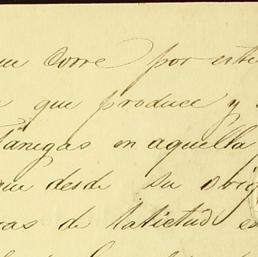 corre por este
que produce y
fanegas en aquella
que desde su orig
ras de latictud es